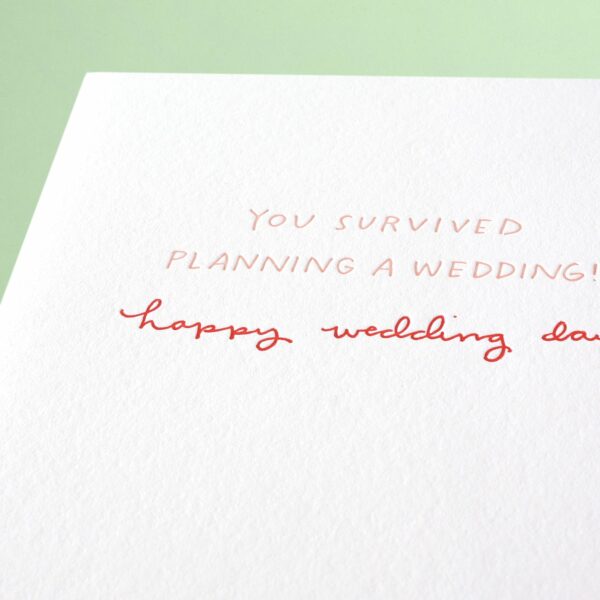 YOU SURVIVED
PLANNING A WEDDING!
happy wedding day